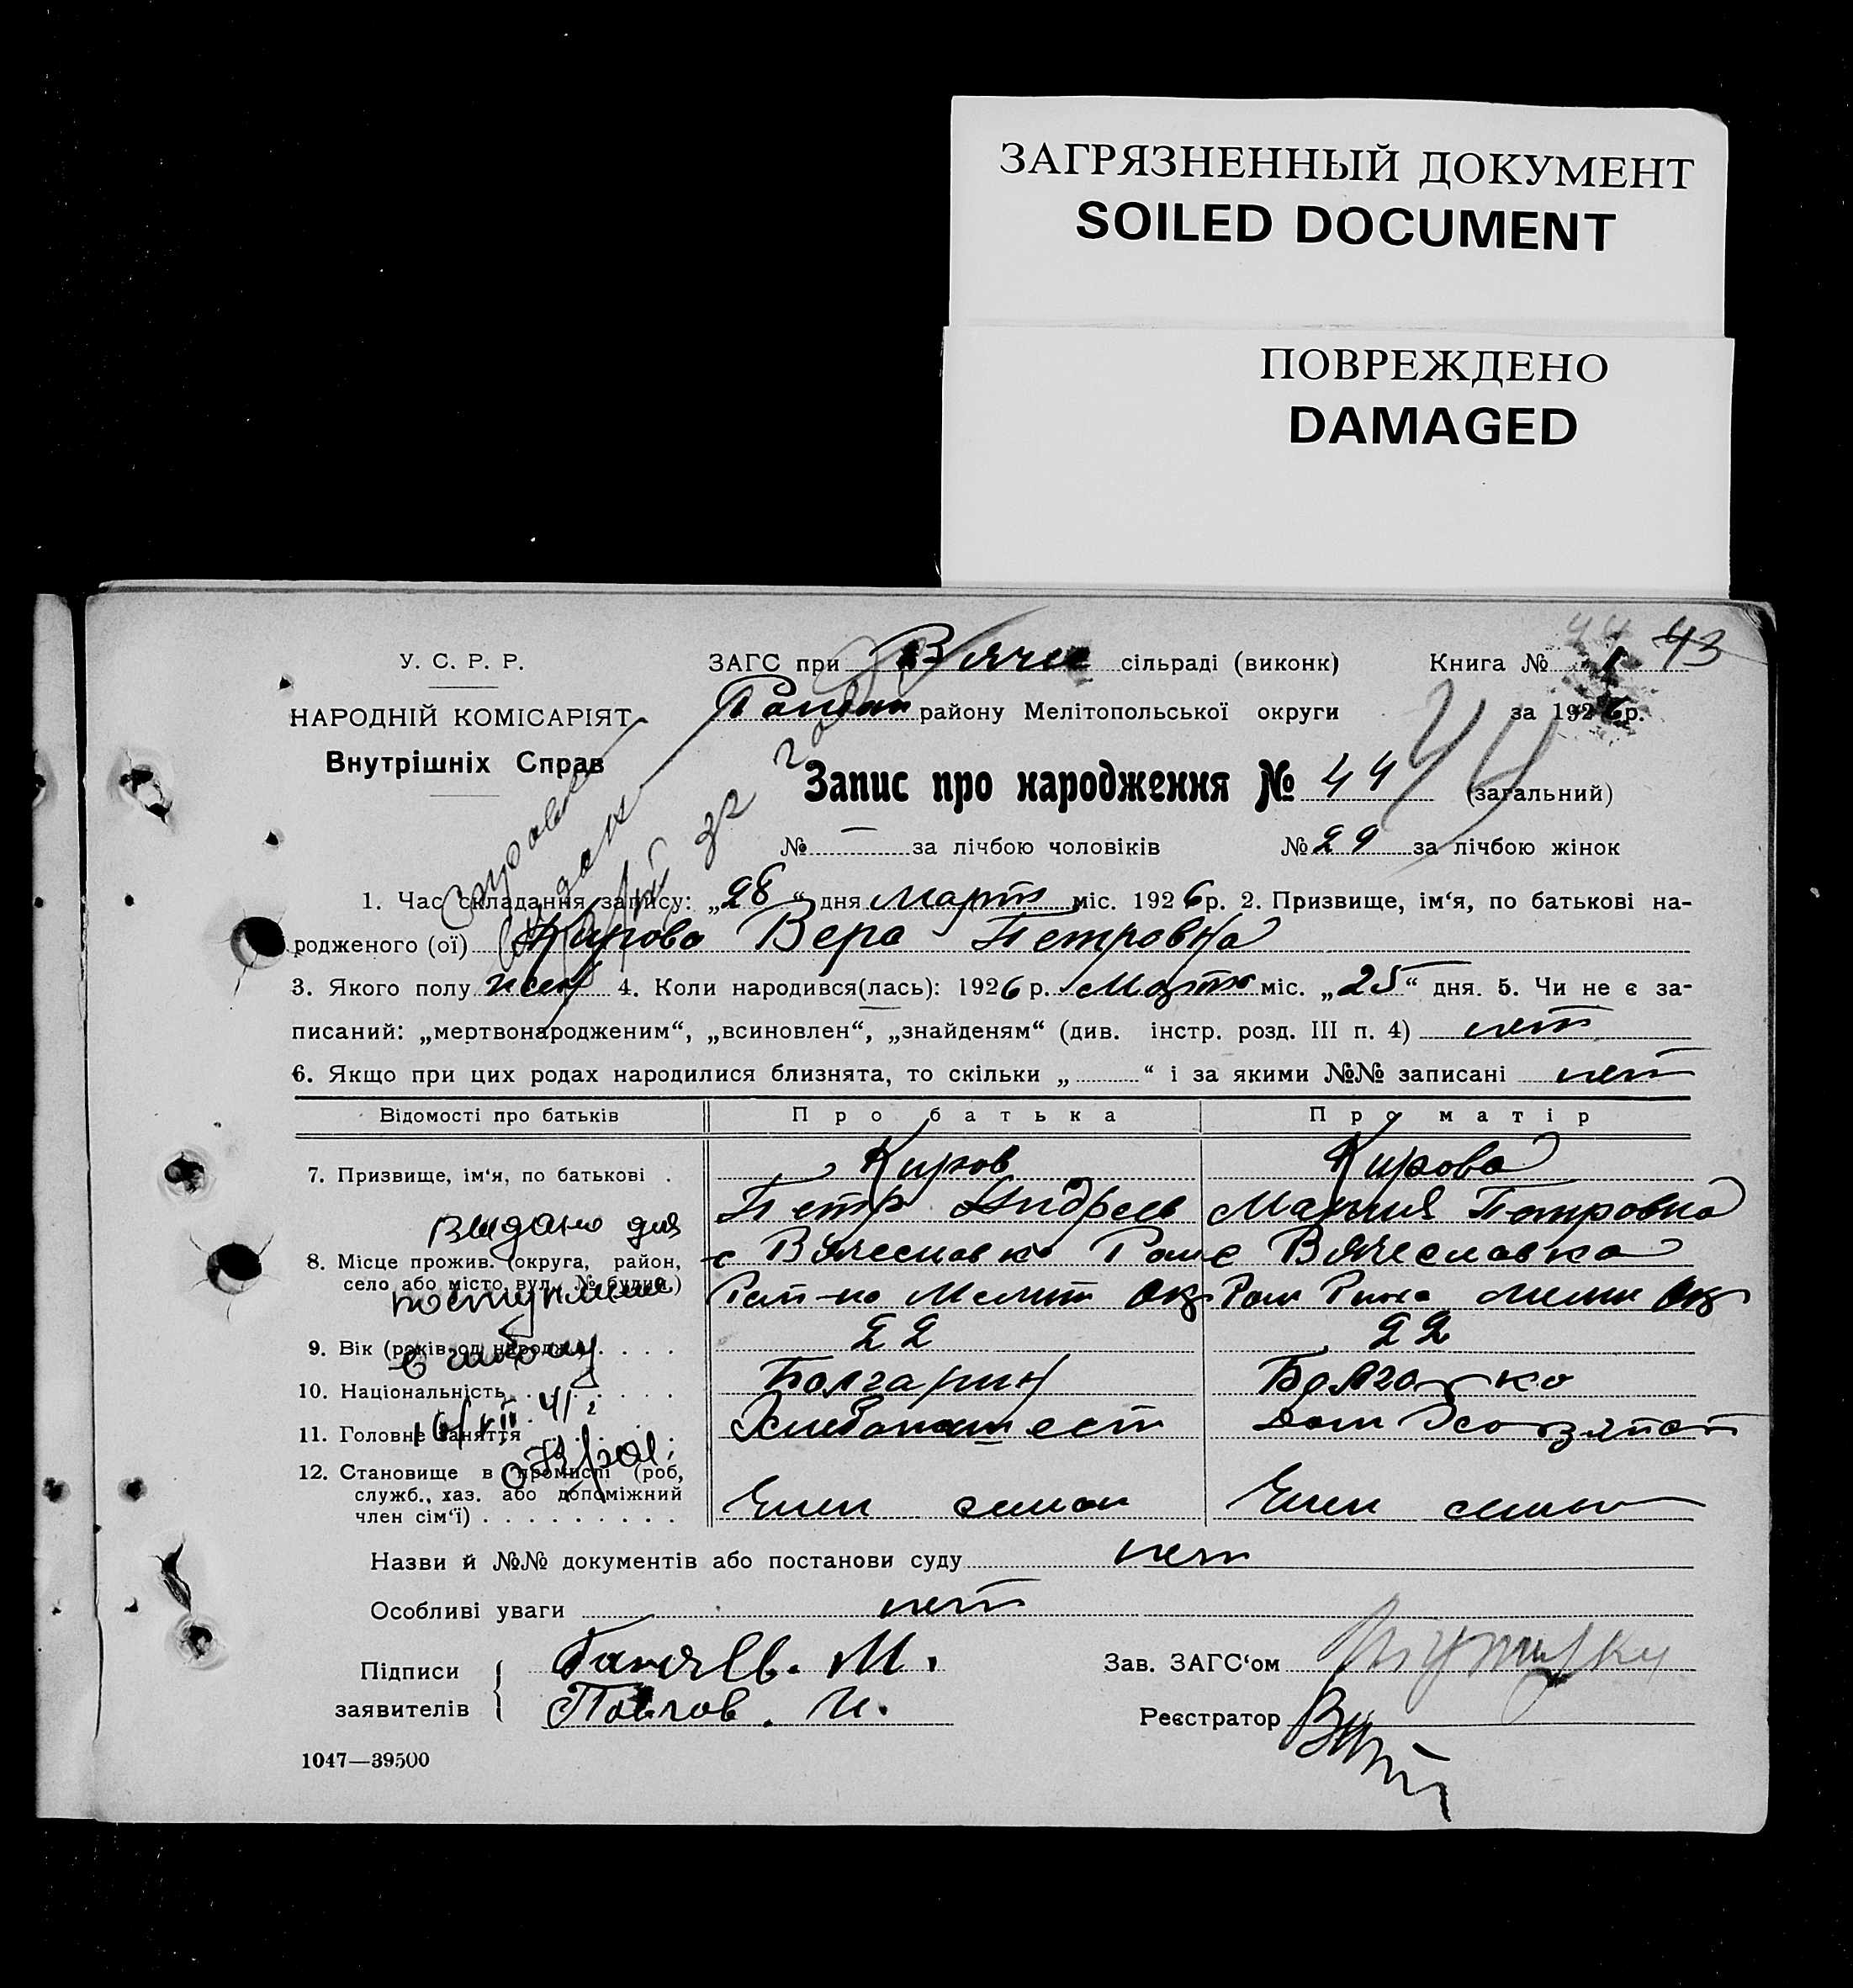 ЗАГРЯЗНЕННЫЙ ДОКУМЕНТ
SOILED DOCUMENT
ПОВРЕЖДЕНО
DAMAGED
44 43
У. С. Р. Р.
НАРОДНІЙ КОМІСАРІЯТ
Внутрішніх Справ
ЗАГС при Вячес сільраді (виконк) Книга № 1
району Мелітопольської округи за 1926 р.
Запис про народження № 44 (загальний)
44
№ — за лічбою чоловіків № 29 за лічбою жінок
1. Час складання запису: „28“ дня Март міс. 1926 р. 2. Призвище, ім‘я, по батькові на-
родженого (ої) Кирова Вера Петровна
3. Якого полу жен 4. Коли народився(лась): 1926 р. Март міс. „25“ дня. 5. Чи не є за-
писаний: „мертвонародженим“, „всиновлен“, „знайденям“ (див. інстр. розд. III п. 4) нет
6. Якщо при цих родах народилися близнята, то скільки „ “ і за якими №№ записані нет
Відомості про батьків Про батька Про матір
7. Призвище, ім‘я, по батькові . Киров Кирова
Петр Андреев Мария Петровна
видано для
8. Місце прожив. (округа, район, с Вячеславка Ром с Вячеславка
село або місто, вул., № будин.) Мелит Окр Ром Мелит Окр
поступления
9. Вік (років од народж.) . . . . 22 22
в школу
10. Національність . . . . . . . Болгарин Болгарка
11. Головне заняття . . . . . . Хлебопашест Дом Хозяйст
12. Становище в промислі (роб,
служб., хаз. або допоміжний Член семьи Член семьи
член сім‘ї) . . . . . . . . .
Назви й №№ документів або постанови суду нет
Особливі уваги нет
Підписи М.
заявителів Павлов. И.
Зав. ЗАГС‘ом
Реєстратор
1047—39500